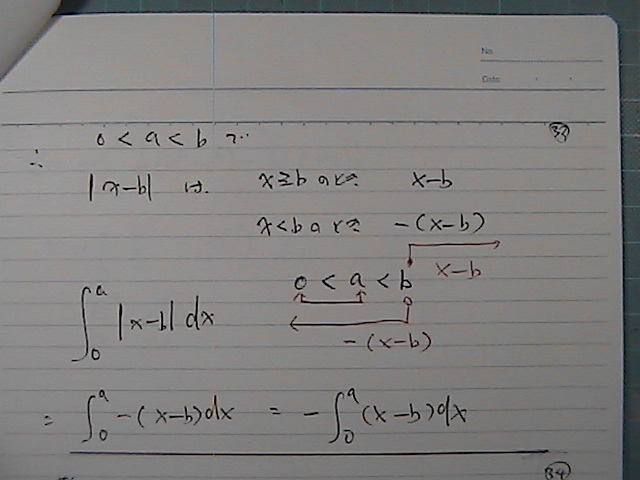 No.
Date
㉝
∴ 0 < a < b で
|x-b| は. x≧b のとき x-b
x<b のとき -(x-b)
0 < a < b x-b
∫₀ᵃ |x-b| dx
-(x-b)
= ∫₀ᵃ -(x-b)dx = -∫₀ᵃ (x-b)dx
㉞